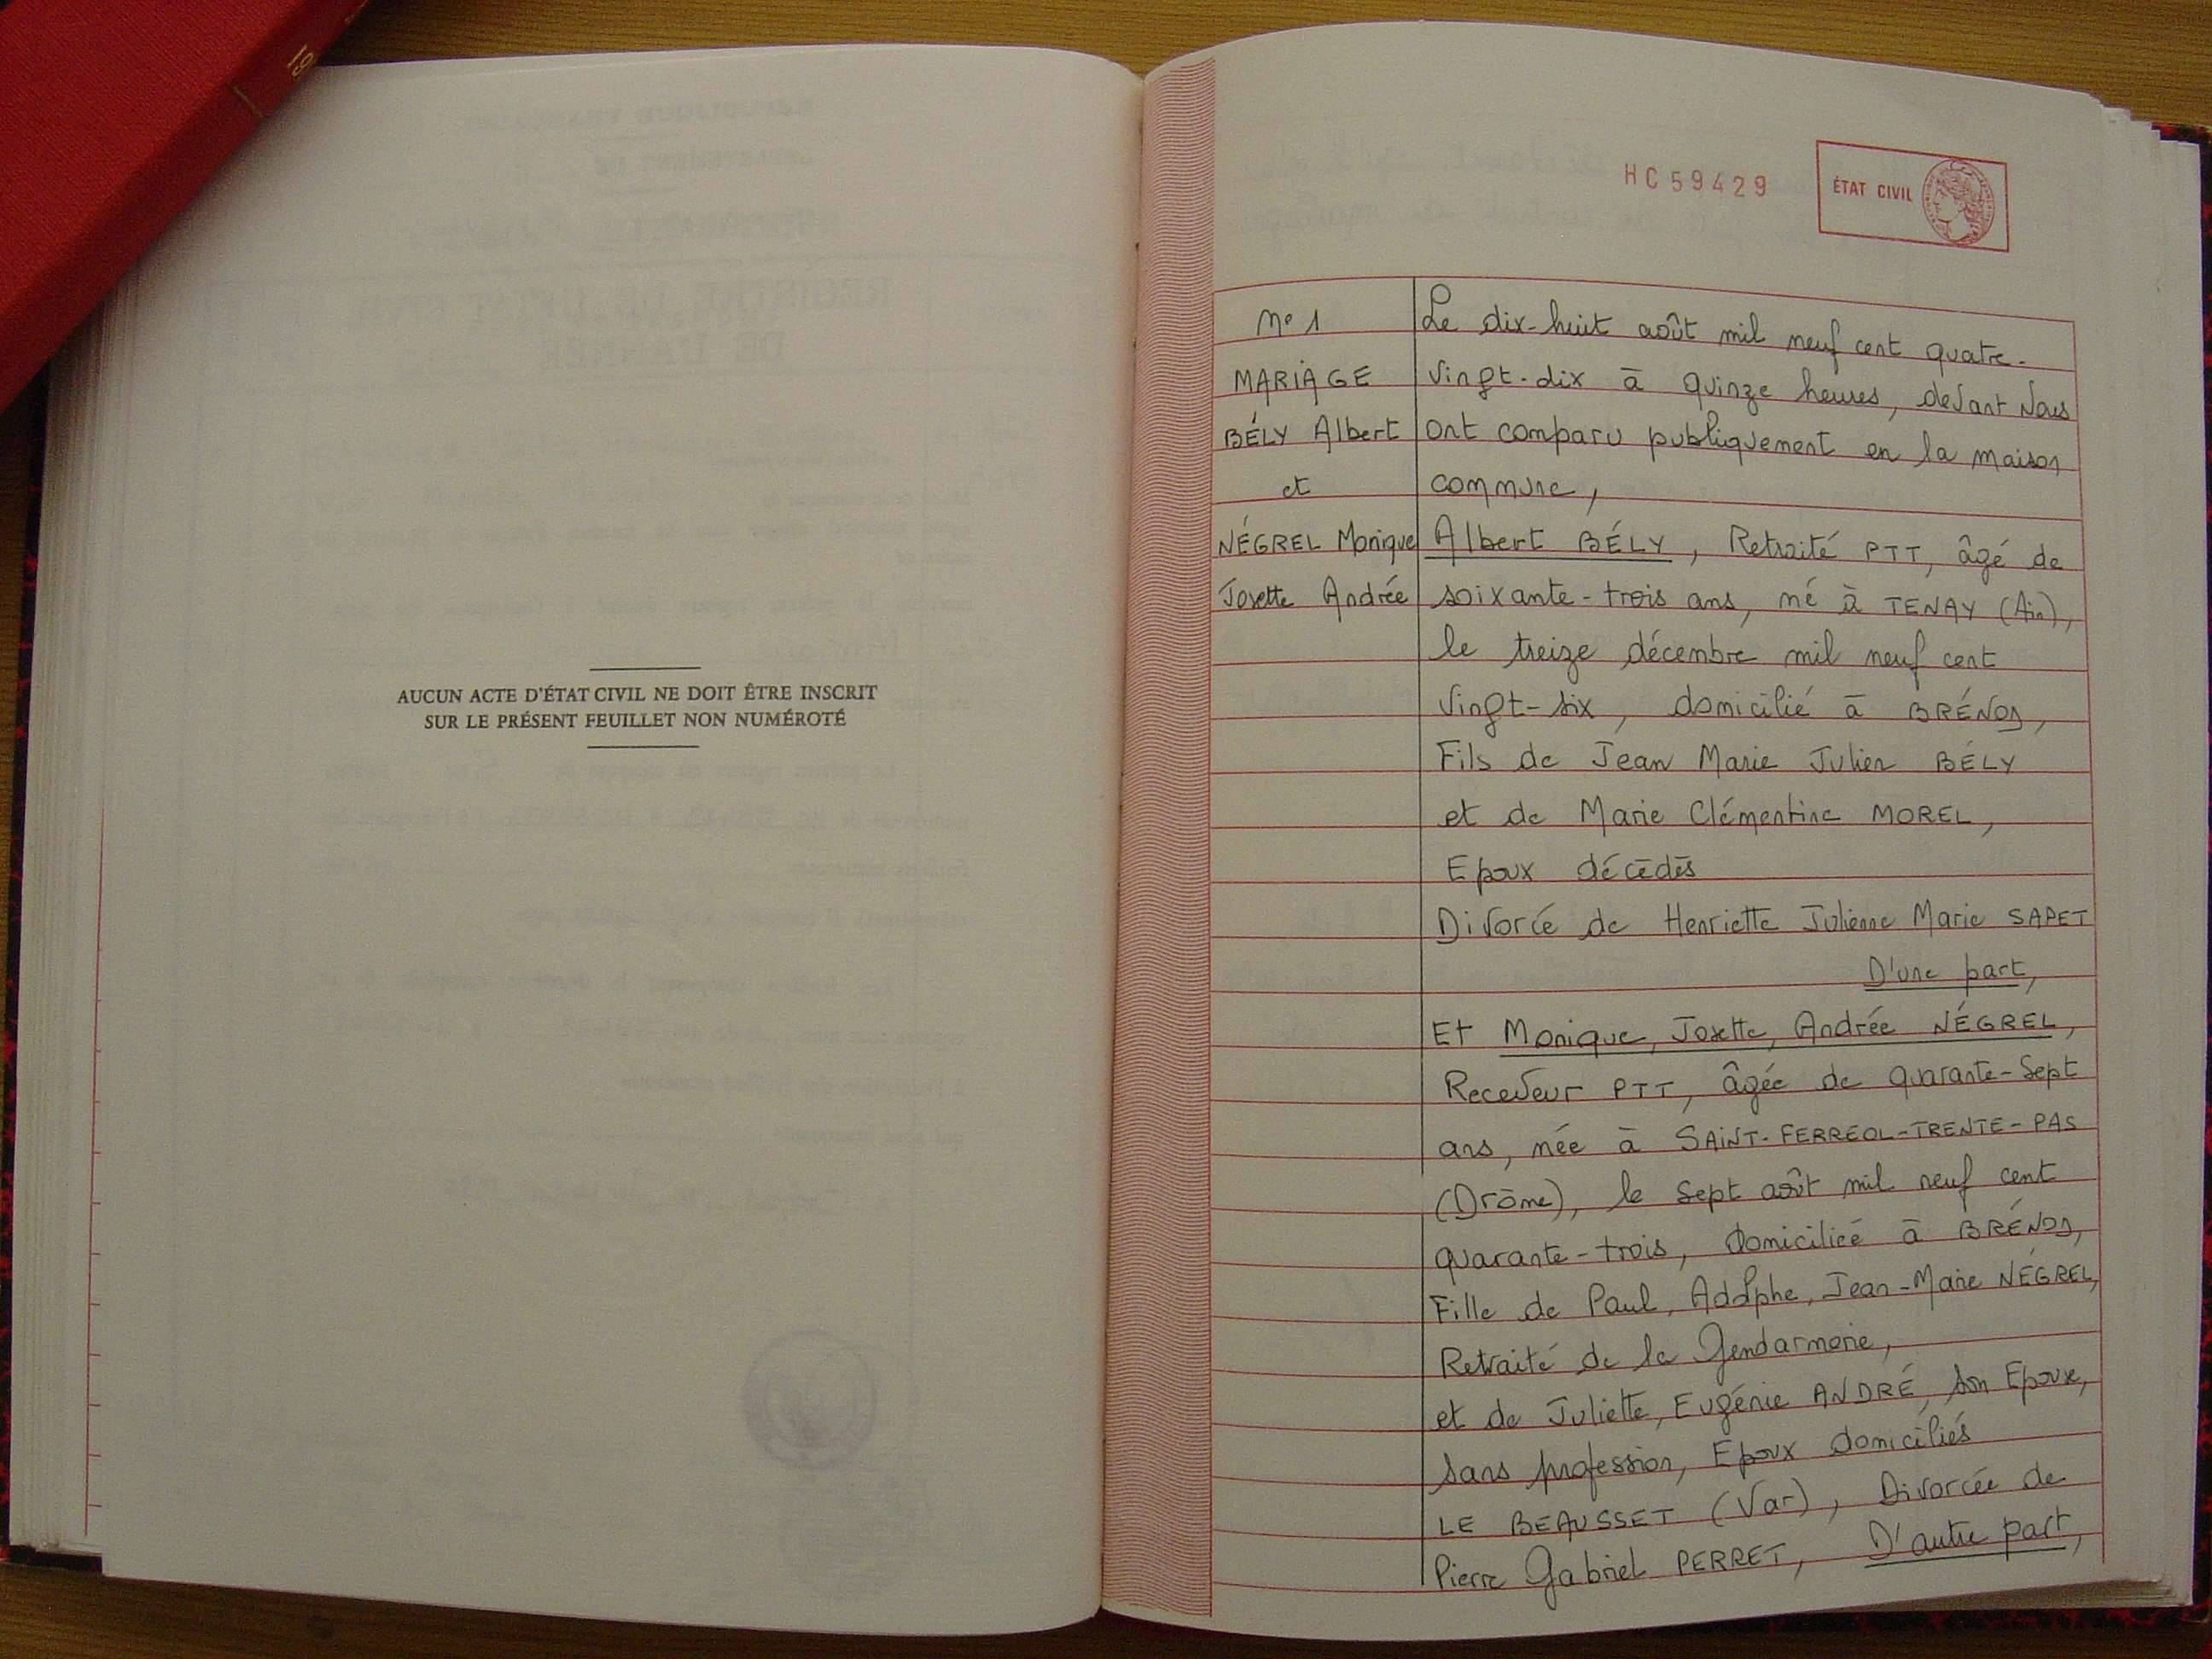 19
AUCUN ACTE D'ÉTAT CIVIL NE DOIT ÊTRE INSCRIT
SUR LE PRÉSENT FEUILLET NON NUMÉROTÉ
HC59429
ÉTAT CIVIL
N° 1
MARIAGE
BÉLY Albert
et
NÉGREL Monique
Josette Andrée
Le dix-huit août mil neuf cent quatre-
vingt-dix à quinze heures, devant Nous
ont comparu publiquement en la maison
commune,
Albert BÉLY, Retraité PTT, âgé de
soixante-trois ans, né à TENAY (Ain),
le treize décembre mil neuf cent
vingt-six, domicilié à BRÉNOD,
Fils de Jean Marie Julien BÉLY
et de Marie Clémentine MOREL,
Epoux décédés
Divorcé de Henriette Julienne Marie SAPET
D'une part,
Et Monique, Josette, Andrée NÉGREL,
Receveur PTT, âgée de quarante-sept
ans, née à SAINT-FERREOL-TRENTE-PAS
(Drôme), le sept août mil neuf cent
quarante-trois, domiciliée à BRÉNOD,
Fille de Paul, Adolphe, Jean-Marie NÉGREL,
Retraité de la Gendarmerie,
et de Juliette, Eugénie ANDRÉ, son Epouse,
sans profession, Epoux domiciliés
LE BEAUSSET (Var), Divorcée de
Pierre Gabriel PERRET, D'autre part,